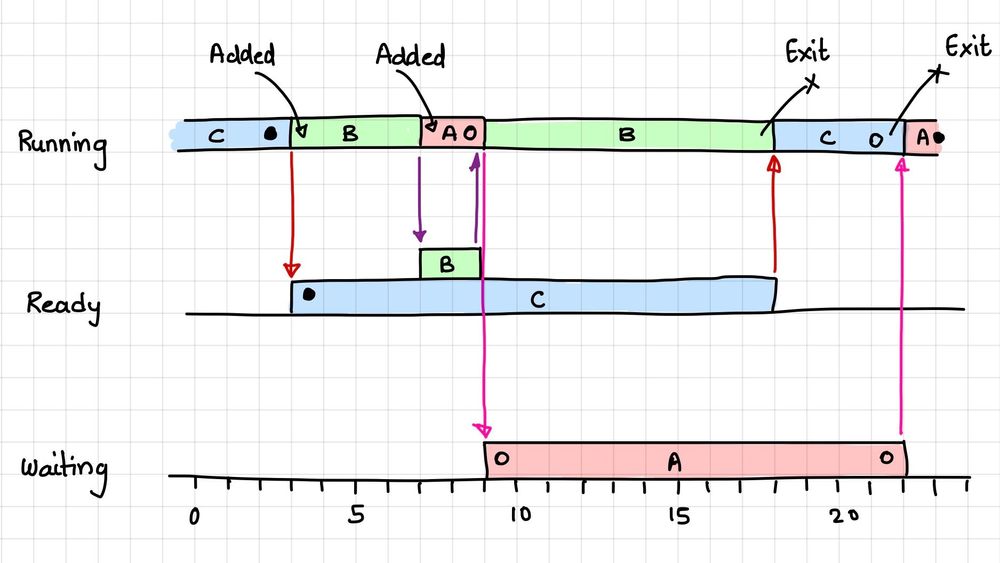 Added Added Exit Exit
Running C B A O B C O A
B
Ready C
Waiting O A O
0 5 10 15 20